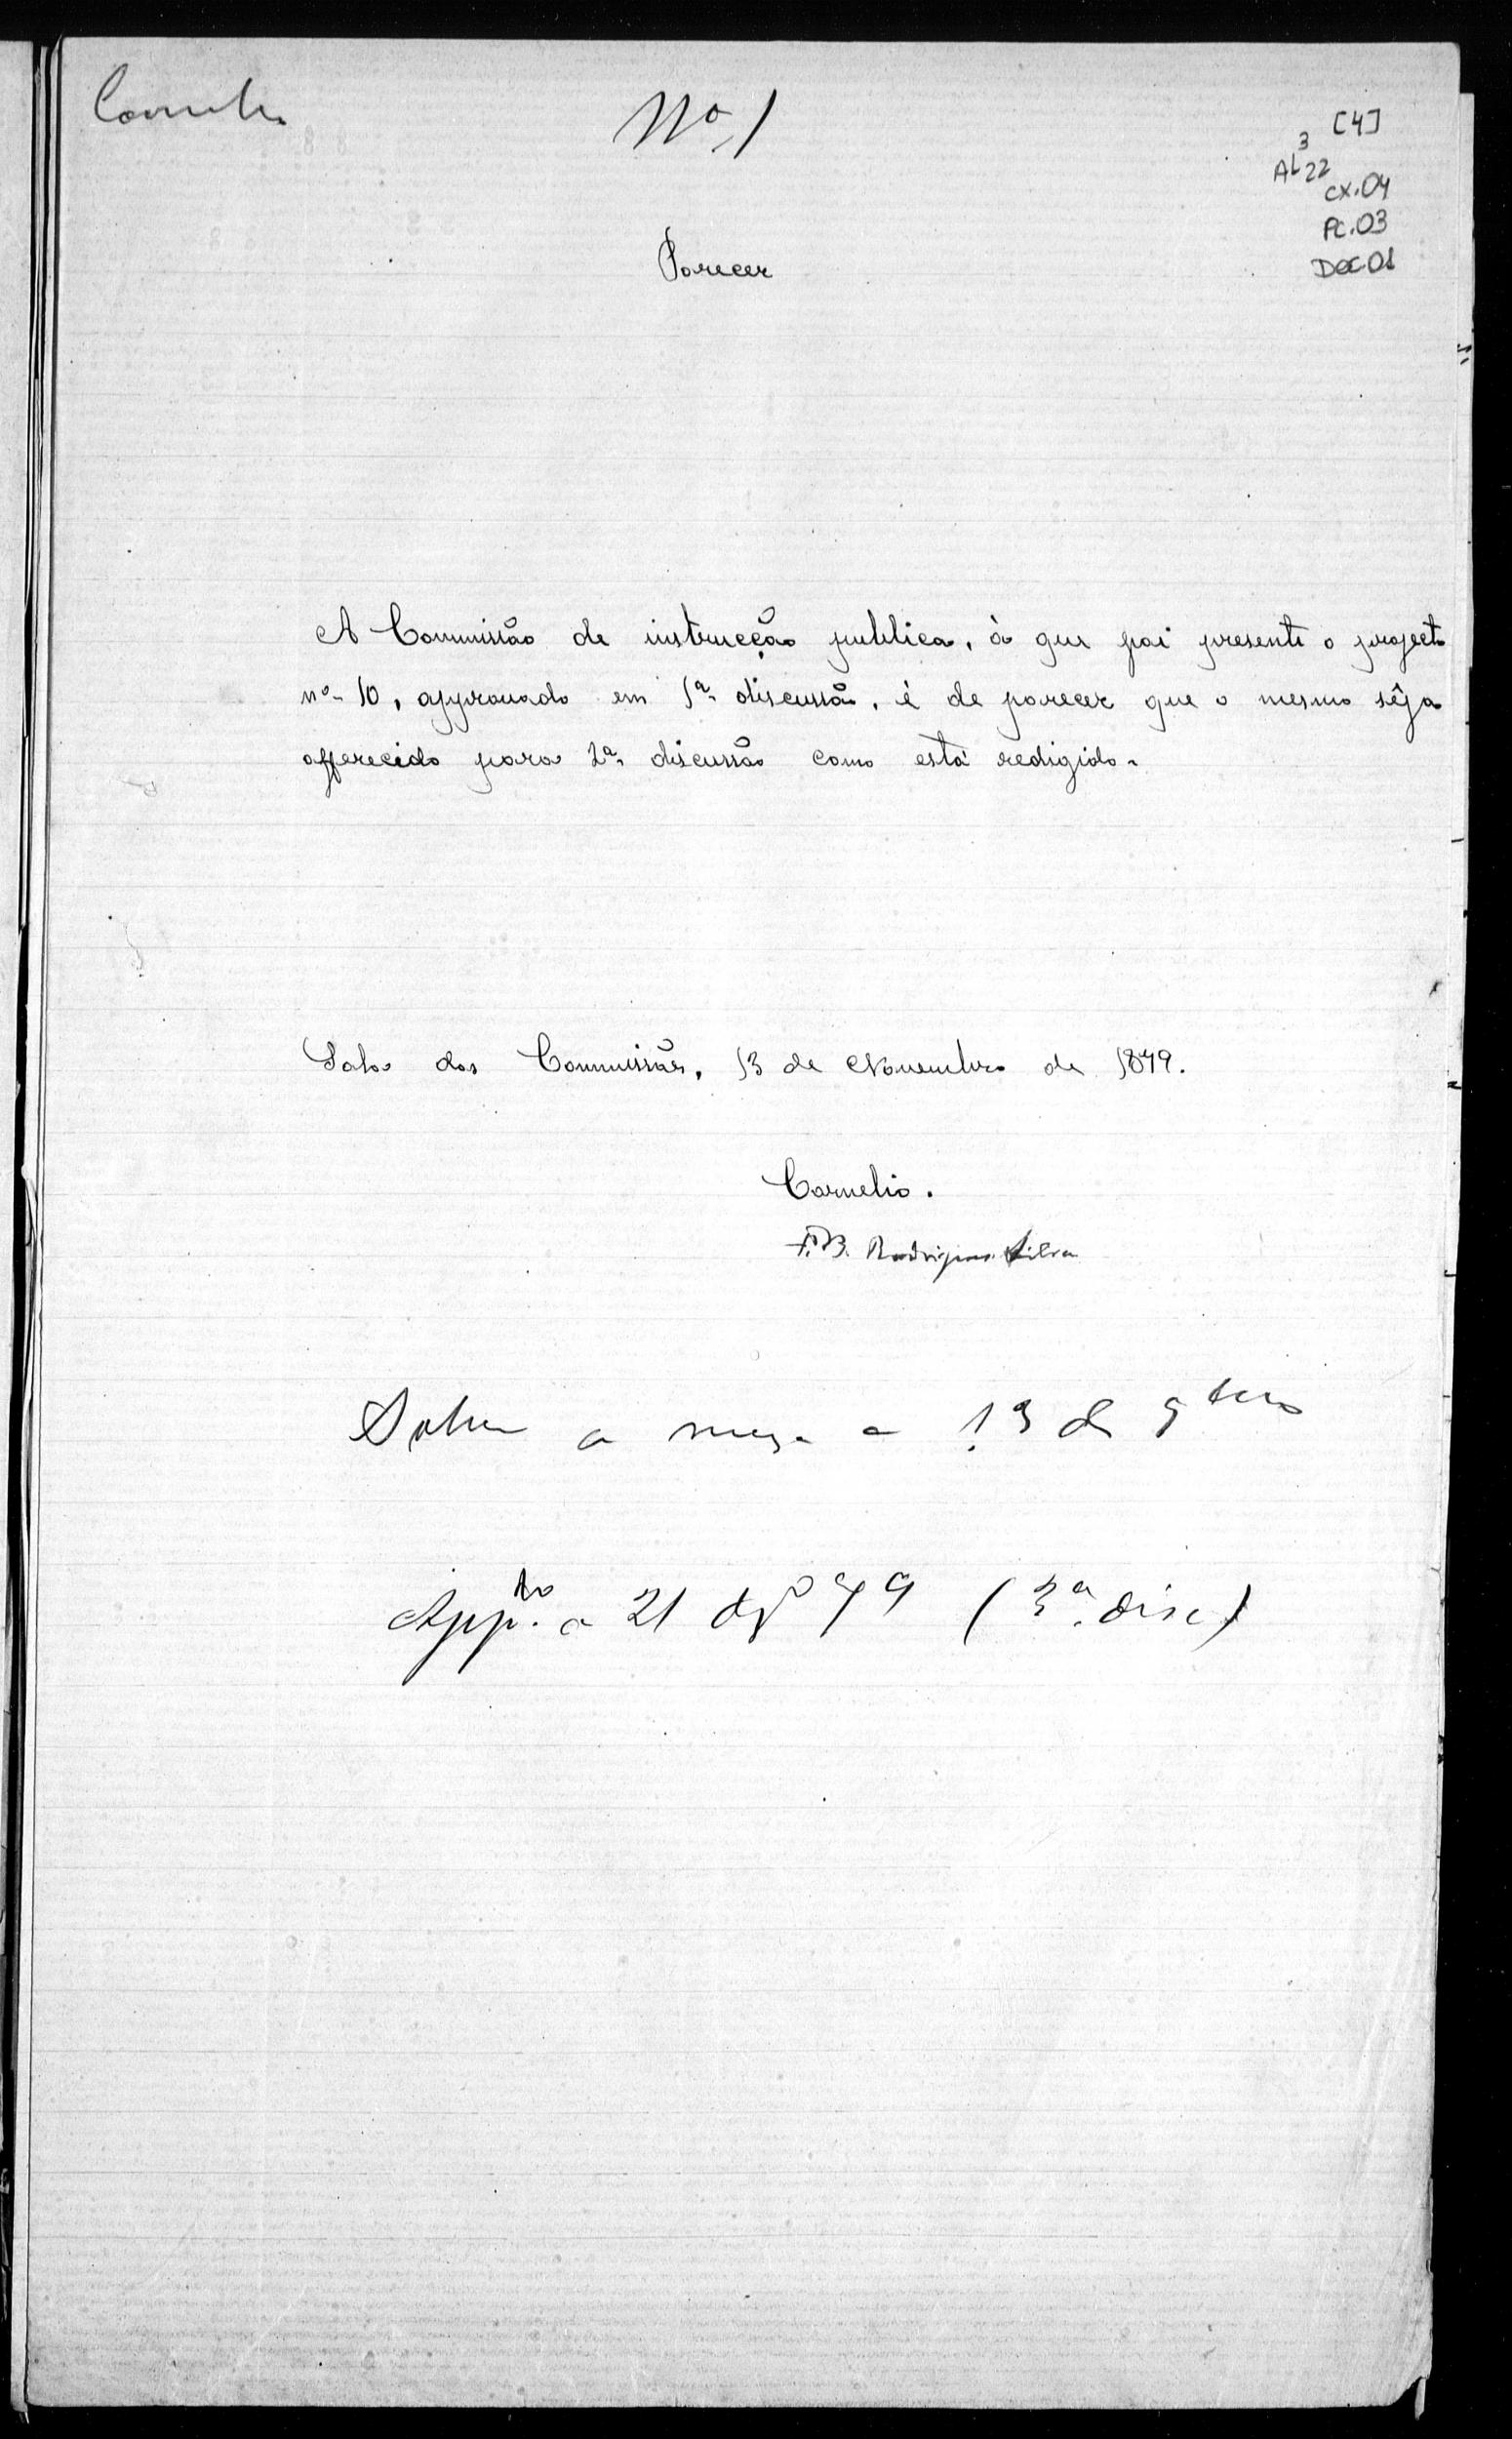 Nº 1
[4]
3
AL22
CX.04
PC.03
DOC.01
Parecer
A Commissão de instrucção publica, á que foi presente o projecto
nº 10, approvado em 1ª discussão, é de parecer que o mesmo sêja
offerecido para 2ª discussão como está redigido.
Sala das Commissões, 13 de Novembro de 1879.
Cornelio.
F. B. Rodrigues Silva
Sobre a mesa a 13 de 9bro
Appdo. a 21 de 79 (3ª disc)